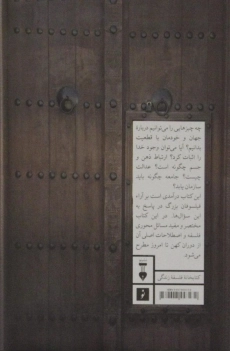 چه چیزهایی را می‌توانیم درباره
جهان و خودمان با قطعیت
بدانیم؟ آیا می‌توان وجود خدا
را اثبات کرد؟ ارتباط ذهن و
جسم چگونه است؟ عدالت
چیست؟ جامعه چگونه باید
سازمان یابد؟
این کتاب درآمدی بر آراء
فیلسوفان بزرگ در پاسخ به
این سؤال‌ها. در این کتاب
مختصر و مفید مسائل محوری
فلسفه و اصطلاحات اصلی آن
از دوران کهن تا امروز مطرح
می‌شود.
کتابخانهٔ فلسفهٔ زندگی